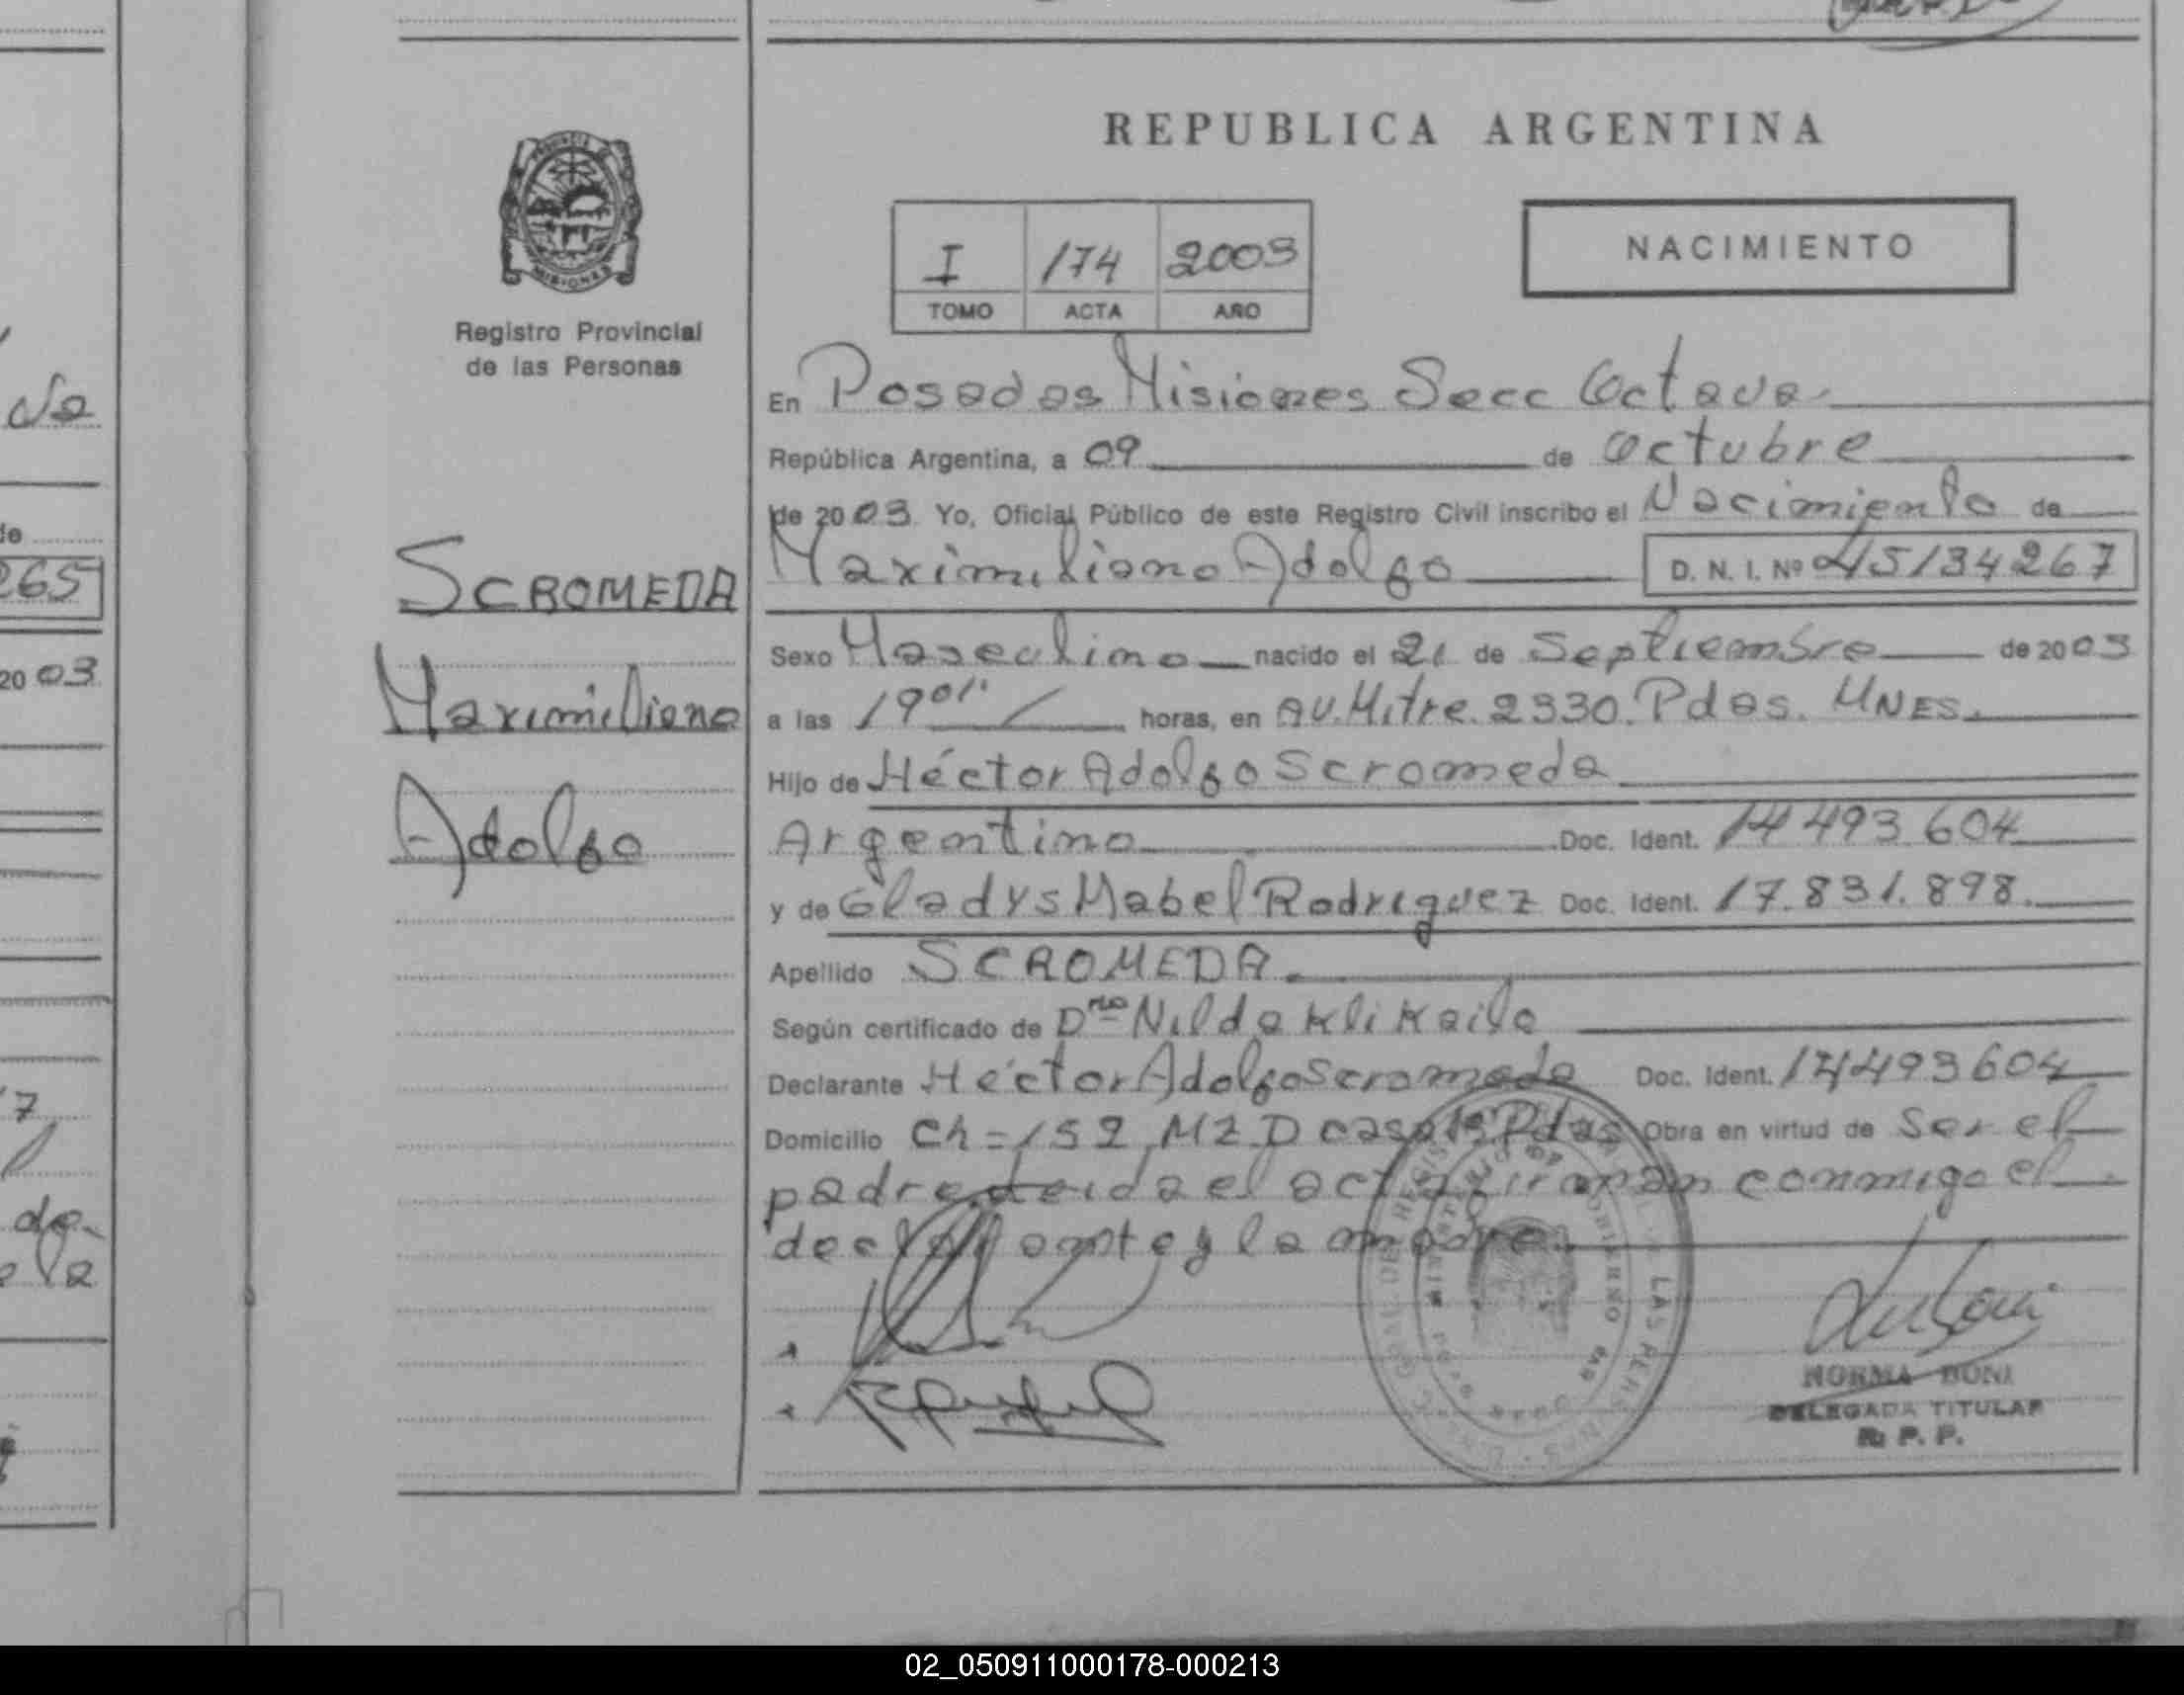 REPUBLICA ARGENTINA
I 174 2003
TOMO ACTA AÑO
NACIMIENTO
Registro Provincial
de las Personas
En Posadas Misiones Secc Octava
República Argentina, a 09 de Octubre
de 2003 Yo, Oficial Público de este Registro Civil inscribo el Nacimiento de
Maximiliano Adolfo D. N. I. Nº 45134267
SCROMEDA
Maximiliano
Adolfo
Sexo Masculino nacido el 21 de Septiembre de 2003
a las 19 horas, en AV. Mitre. 2330. Pdas. MNES.
Hijo de Héctor Adolfo Scromeda
Argentino Doc. Ident. 14 493 604
y de Gladys Mabel Rodriguez Doc. Ident. 17.831.898.
Apellido SCROMEDA.
Según certificado de Nilda
Declarante Héctor Adolfo Scromeda Doc. Ident. 14493604
Domicilio Ch = 152 MZ D casa Pdas Obra en virtud de Ser el
padre Leida el acta firman conmigo el
declarante y la madre.
NORMA BONI
DELEGADA TITULAR
R. P. P.
de
265
20 03
7
de
la
02_050911000178-000213